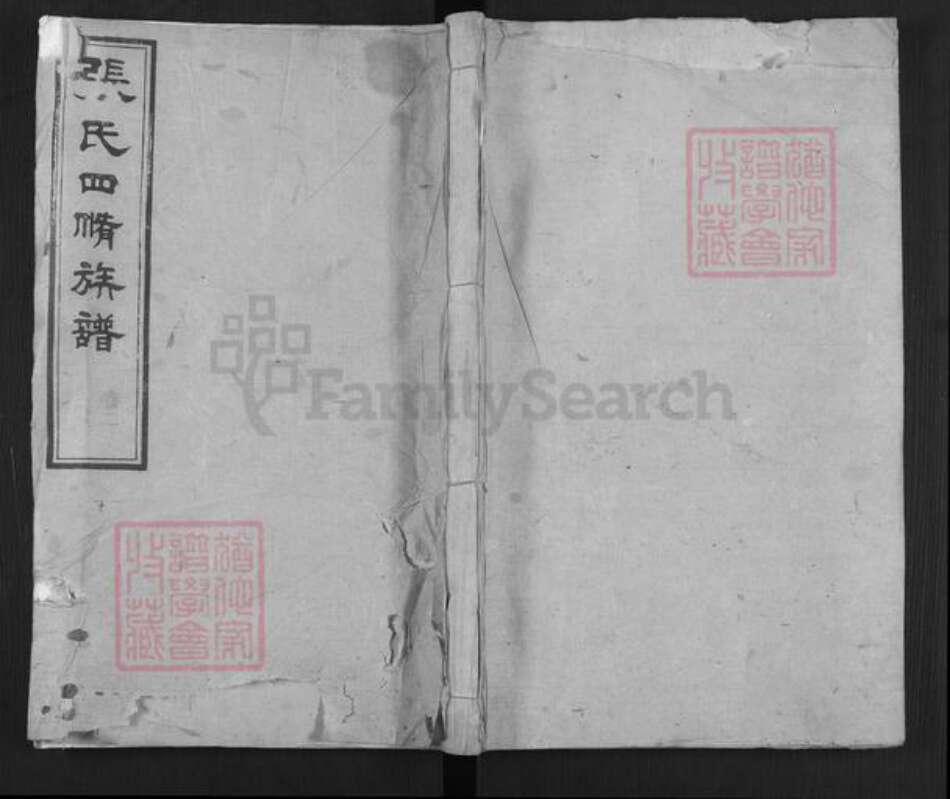 張氏四脩族譜
猶他家譜學會收藏
FamilySearch
猶他家譜學會收藏